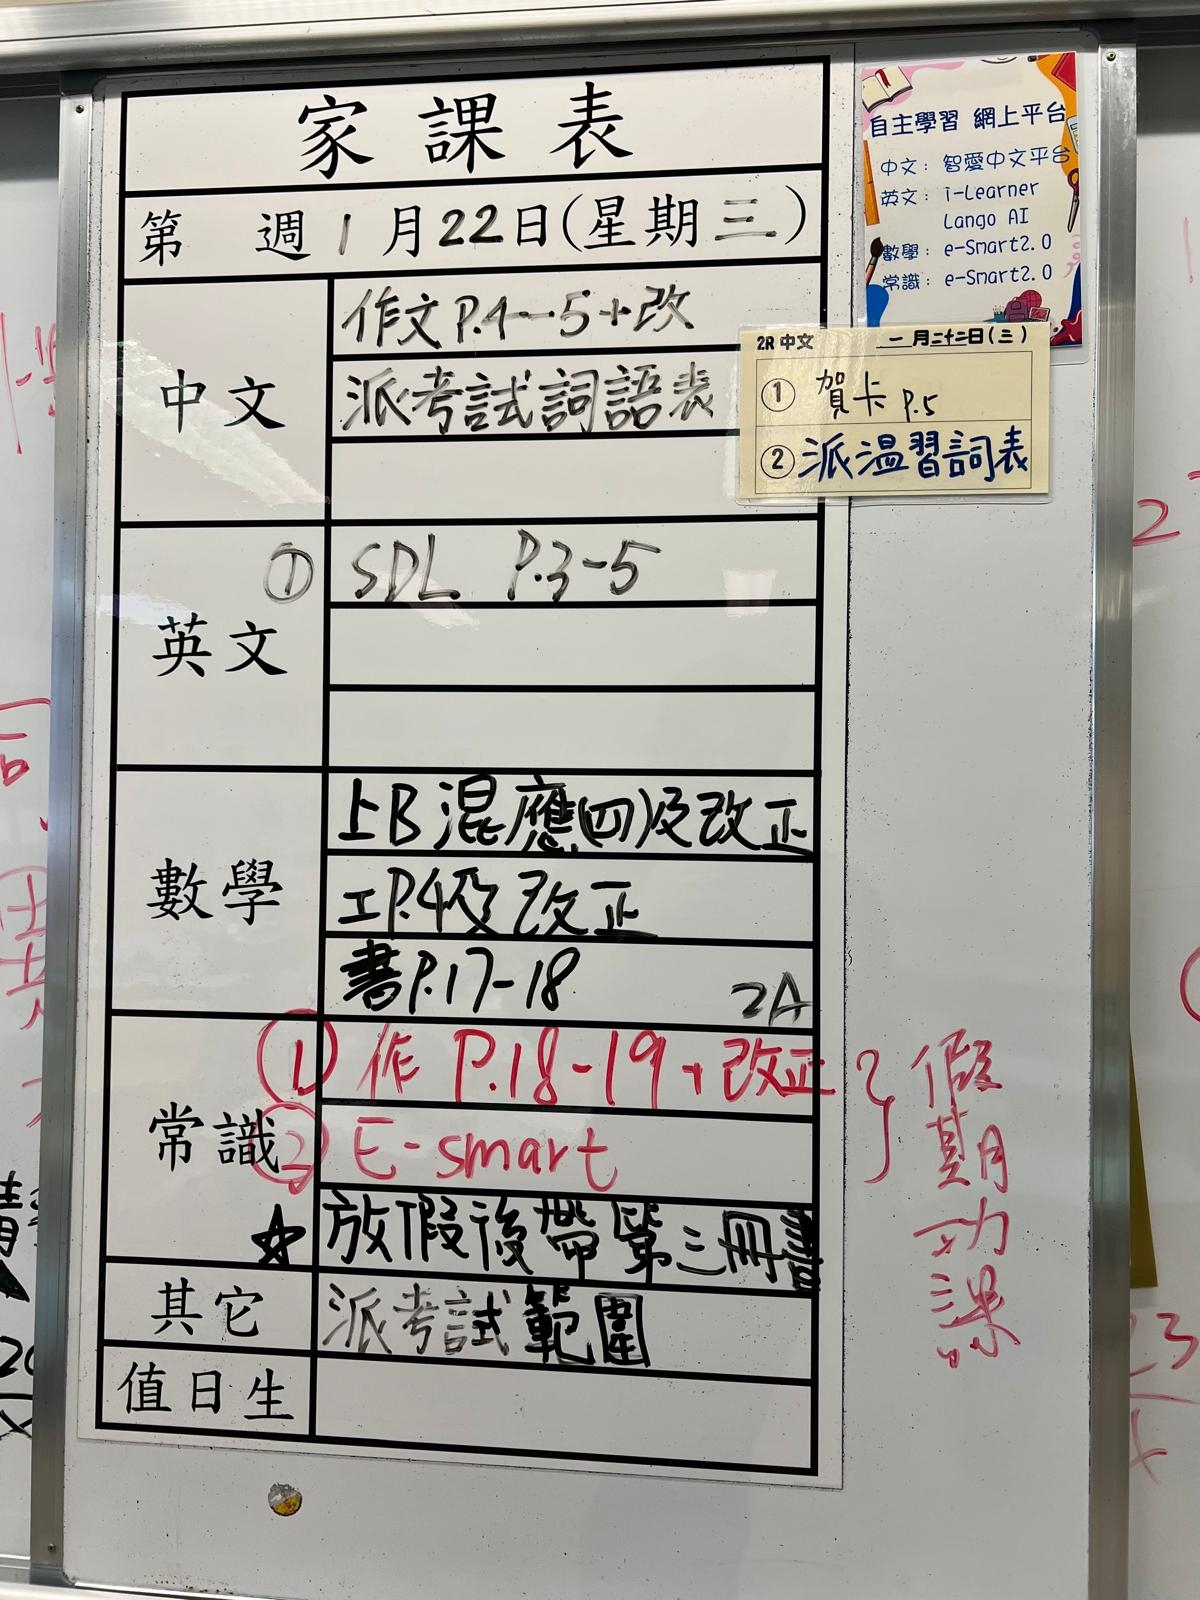 家課表
第 週 1月22日(星期三)
中文
作文P.4-5+改
派考試詞語表
英文
① SDL P.3-5
數學
上B混應(四)及改正
工P.4及改正
書P.17-18 2A
常識
① 作 P.18-19+改正
② E-smart
假期功課
☆ 放假後帶第三冊書
其它
派考試範圍
值日生
自主學習 網上平台
中文: 智愛中文平台
英文: i-Learner
Lango AI
數學: e-Smart2.0
常識: e-Smart2.0
2R 中文 一月二十二日(三)
① 賀卡 P.5
② 派溫習詞表